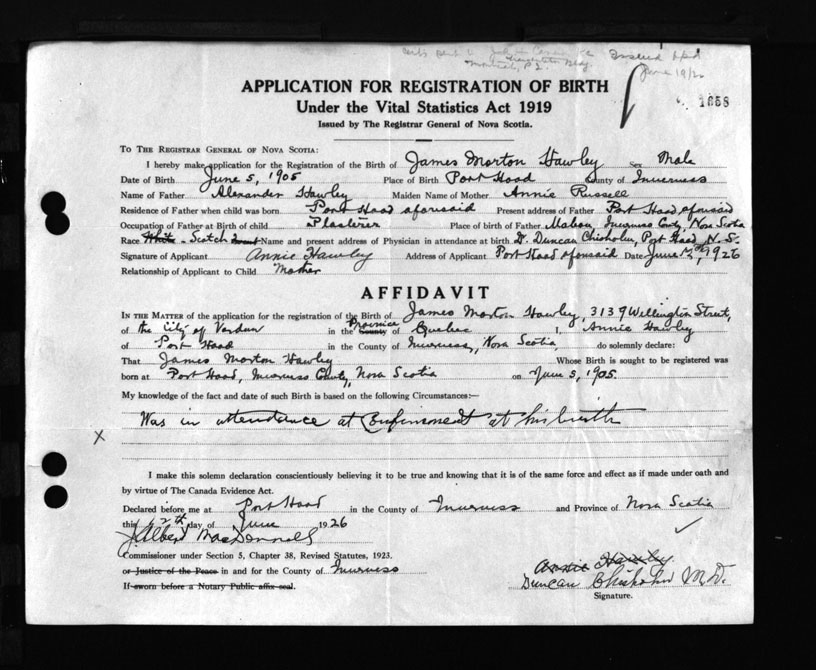 Issued
June 19/26
APPLICATION FOR REGISTRATION OF BIRTH
Under the Vital Statistics Act 1919
1858
Issued by The Registrar General of Nova Scotia.
TO THE REGISTRAR GENERAL OF NOVA SCOTIA:
I hereby make application for the Registration of the Birth of James Morton Hawley Sex Male
Date of Birth June 5, 1905 Place of Birth Port Hood County of Inverness
Name of Father Alexander Hawley Maiden Name of Mother Annie Russell
Residence of Father when child was born Port Hood aforesaid Present address of Father Port Hood aforesaid
Occupation of Father at Birth of child Plasterer Place of birth of Father Mabou, Inverness County, Nova Scotia
Race White - Scotch Name and present address of Physician in attendance at birth Dr. Duncan Chisholm, Port Hood, N.S.
Signature of Applicant Annie Hawley Address of Applicant Port Hood aforesaid Date June 12th, 1926
Relationship of Applicant to Child Mother
AFFIDAVIT
IN THE MATTER of the application for the registration of the Birth of James Morton Hawley, 3139 Wellington Street,
of the City of Verdun in the County Province of Quebec I, Annie Hawley
of Port Hood in the County of Inverness, Nova Scotia, do solemnly declare:
That James Morton Hawley Whose Birth is sought to be registered was
born at Port Hood, Inverness County, Nova Scotia on June 5, 1905.
My knowledge of the fact and date of such Birth is based on the following Circumstances:—
Was in attendance at Confinement at his birth
X
I make this solemn declaration conscientiously believing it to be true and knowing that it is of the same force and effect as if made under oath and
by virtue of The Canada Evidence Act.
Declared before me at Port Hood in the County of Inverness and Province of Nova Scotia
this 12th day of June 1926
J. Albert MacDonnell
Commissioner under Section 5, Chapter 38, Revised Statutes, 1923.
or Justice of the Peace in and for the County of Inverness
Annie Hawley
Duncan Chisholm M.D.
If sworn before a Notary Public affix seal.
Signature.